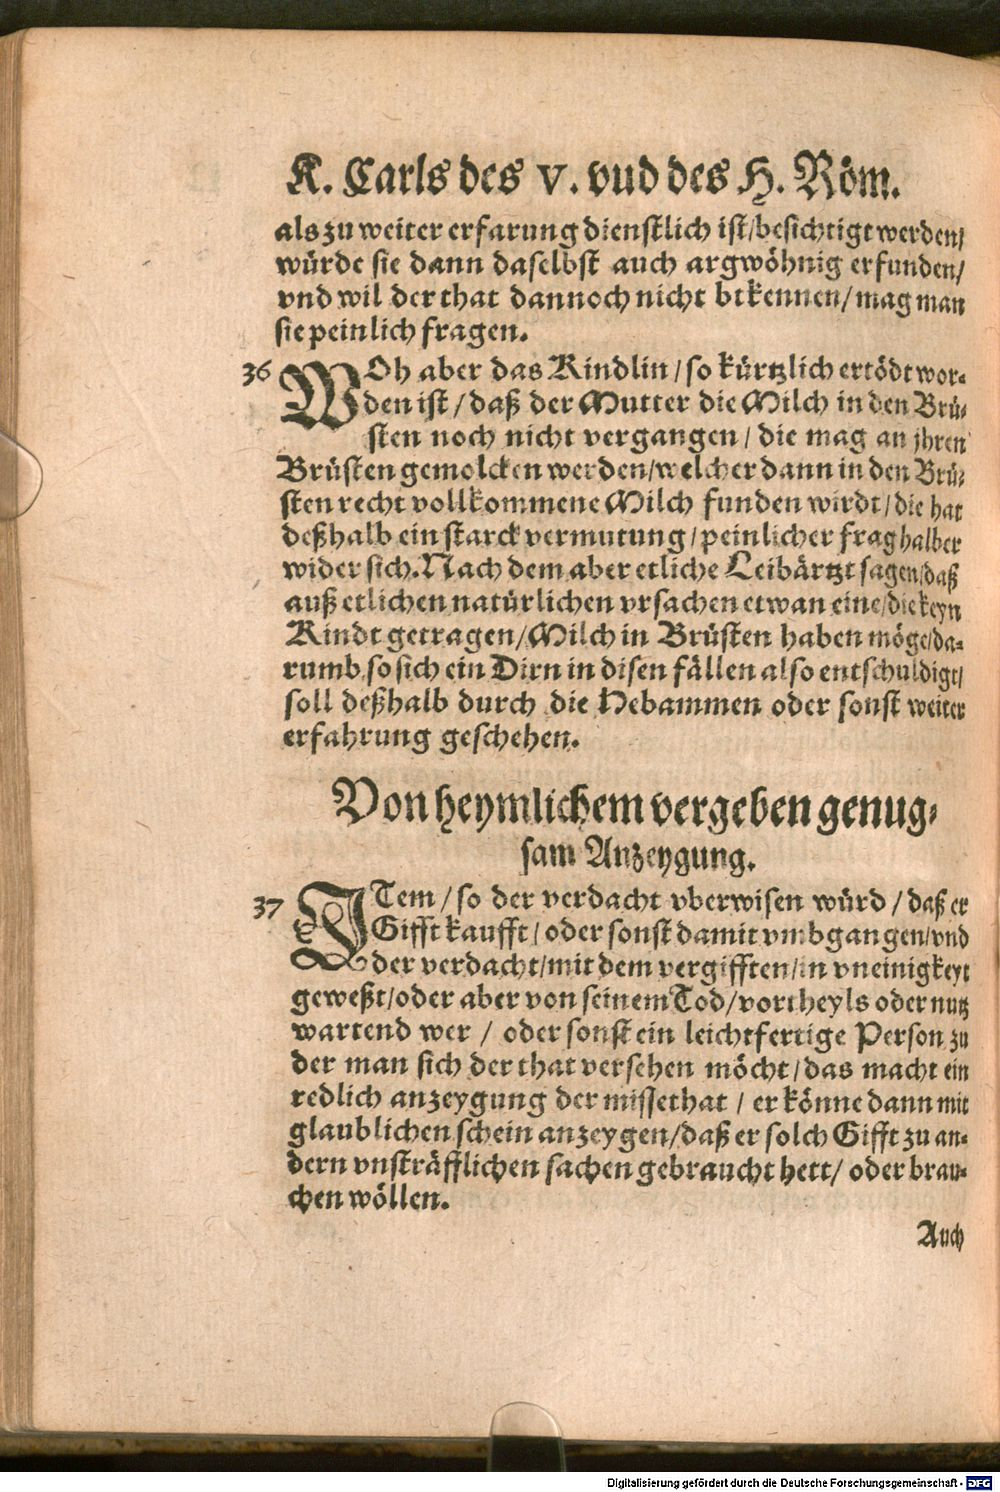 K. Carls des V. vud des H. Röm.
als zu weiter erfarung dienstlich ist/besichtigt werden/
würde sie dann daselbst auch argwöhnig erfunden/
vnd wil der that dannoch nicht btkennen/mag man
sie peinlich fragen.
36 WOh aber das Kindlin/so kürtzlich ertödt wor-
den ist/daß der Mutter die Milch in den Brü-
sten noch nicht vergangen/die mag an jhren
Brüsten gemolcken werden/welcher dann in den Brü-
sten recht vollkommene Milch funden wirdt/die hat
deßhalb ein starck vermutung/peinlicher frag halber
wider sich. Nach dem aber etliche Leibärtzt sagen/daß
auß etlichen natürlichen vrsachen etwan eine/die keyn
Kindt getragen/Milch in Brüsten haben möge/da-
rumb, so sich ein Dirn in disen fällen also entschuldigt/
soll deßhalb durch die Hebammen oder sonst weiter
erfahrung geschehen.
Von heymlichem vergeben genug-
sam Anzeygung.
37 ITem/so der verdacht vberwisen würd/daß er
Gifft kaufft/oder sonst damit vmbgangen/vnd
der verdacht/mit dem vergifften/in vneinigkeyt
geweßt/oder aber von seinem Tod/vortheyls oder nutz
wartend wer/oder sonst ein leichtfertige Person zu
der man sich der that versehen möcht/das macht ein
redlich anzeygung der missethat/er könne dann mit
glaublichen schein anzeygen/daß er solch Gifft zu an-
dern vnsträfflichen sachen gebraucht hett/oder brau-
chen wöllen.
Auch
Digitalisierung gefördert durch die Deutsche Forschungsgemeinschaft - DFG